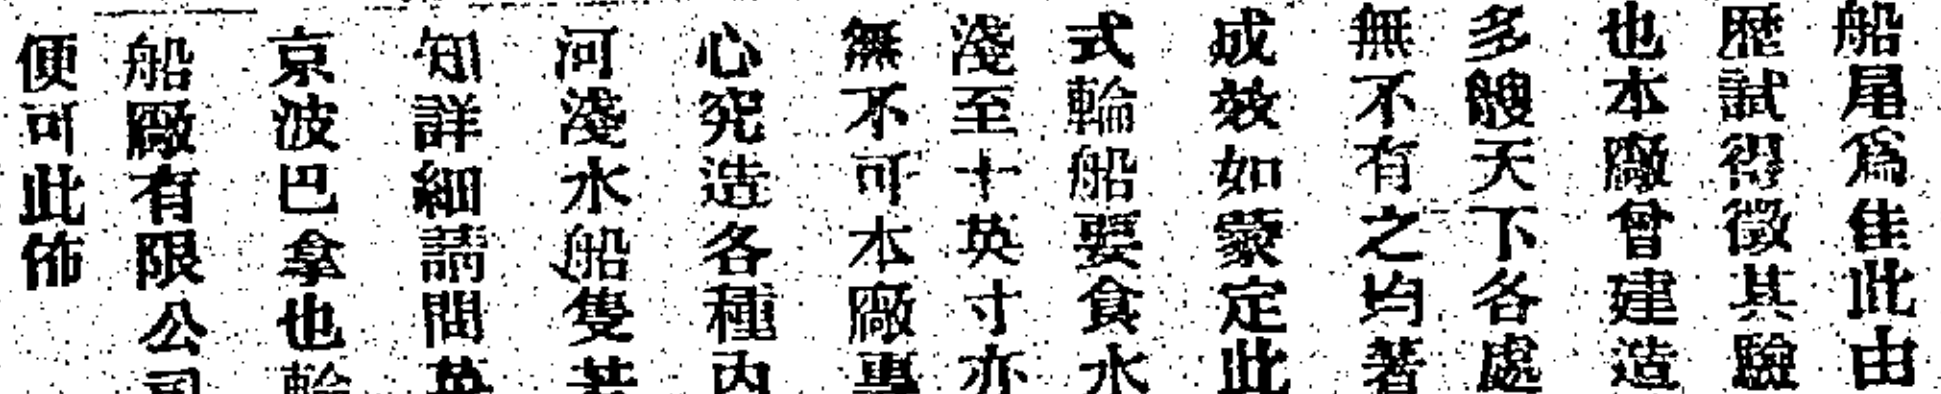 船尾爲佳此由
歷試得徵其驗
也本廠曾建造
多艘天下各處
無不有之均著
成效如蒙定此
式輪船要食水
淺至十英寸亦
無不可本廠專
心究造各種內
河淺水船隻若
知詳細請問英
京波巴拿也輪
船廠有限公司
便可此佈